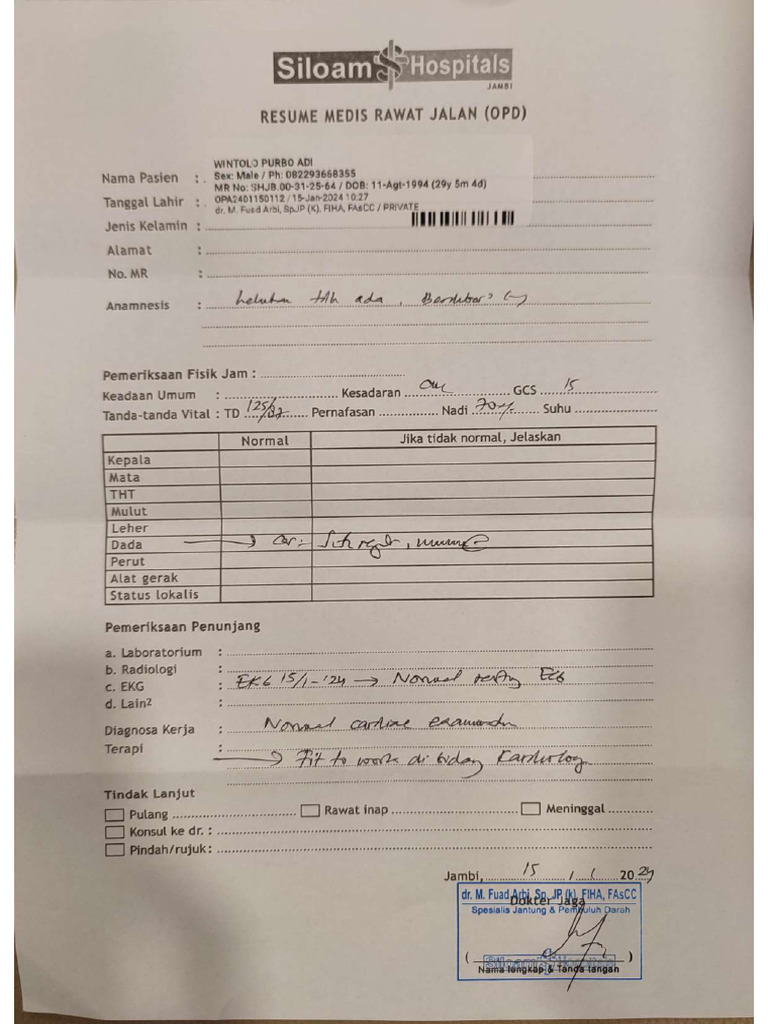 Siloam Hospitals
JAMBI
RESUME MEDIS RAWAT JALAN (OPD)
WINTOLO PURBO ADI
Nama Pasien : Sex: Male / Ph: 082293668355
MR No: SHJB.00-31-25-64 / DOB: 11-Agt-1994 (29y 5m 4d)
Tanggal Lahir : OPA2401150112 / 15-Jan-2024 10:27
dr. M. Fuad Arbi, SpJP (K), FIHA, FAsCC / PRIVATE
Jenis Kelamin :
Alamat :
No. MR :
Anamnesis : keluhan tdk ada, Berdebar² (-)
Pemeriksaan Fisik Jam :
Keadaan Umum : Kesadaran CM GCS 15
Tanda-tanda Vital : TD 125/82 Pernafasan Nadi 70 Suhu
Normal Jika tidak normal, Jelaskan
Kepala
Mata
THT
Mulut
Leher
Dada → Cor:
Perut
Alat gerak
Status lokalis
Pemeriksaan Penunjang
a. Laboratorium :
b. Radiologi :
c. EKG : EKG 15/1-'24 → Normal resting ECG
d. Lain2 :
Diagnosa Kerja : Normal cardiac examination
Terapi :
→ Fit to work di bidang Kardiologi
Tindak Lanjut
Pulang Rawat inap Meninggal
Konsul ke dr. :
Pindah/rujuk:
Jambi, 15 / 1 2024
dr. M. Fuad Arbi, Sp. JP (k), FIHA, FAsCC
Dokter Jaga
Spesialis Jantung & Pembuluh Darah
( )
Nama lengkap & Tanda tangan